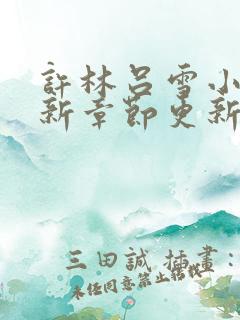 許林呂雪小
新章節更新
三田誠 插畫：
未任同意禁止轉載